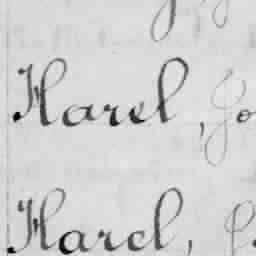 Harel, Jo
Harel, J